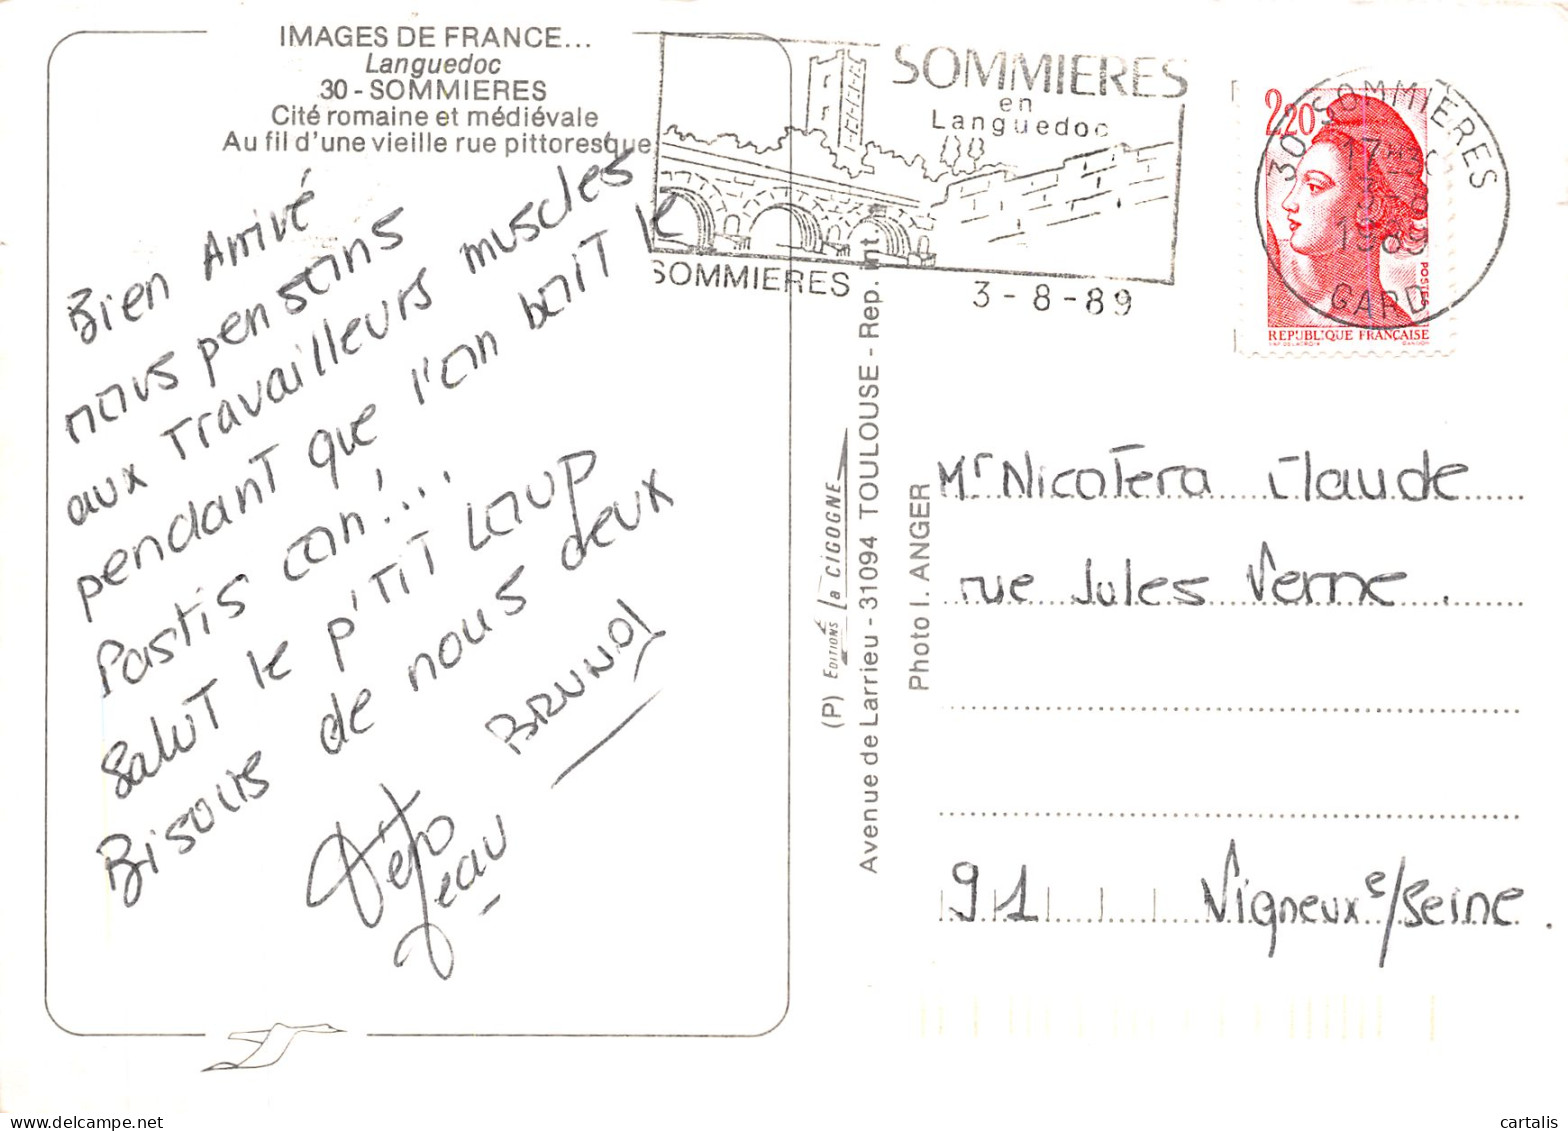 IMAGES DE FRANCE...
Languedoc
30 - SOMMIERES
Cité romaine et médiévale
Au fil d'une vieille rue pittoresque
Bien Arrivé
nous pensons
aux Travailleurs muscles
pendant que l'on boit le
Pastis con!...
Salut le p'tit Loup
Bisous de nous deux
BRUNO
Jeau
SOMMIERES
en
Languedoc
SOMMIERES
3-8-89
2,20
30 SOMMIERES
17
3 8
1989
GARD
POSTES
REPUBLIQUE FRANÇAISE
(P) EDITIONS la CIGOGNE
Avenue de Larrieu - 31094 TOULOUSE - Rep. int.
Photo I. ANGER
Mr Nicotera Claude
rue Jules Verne.
91 Vigneux s/Seine.
delcampe.net
cartalis